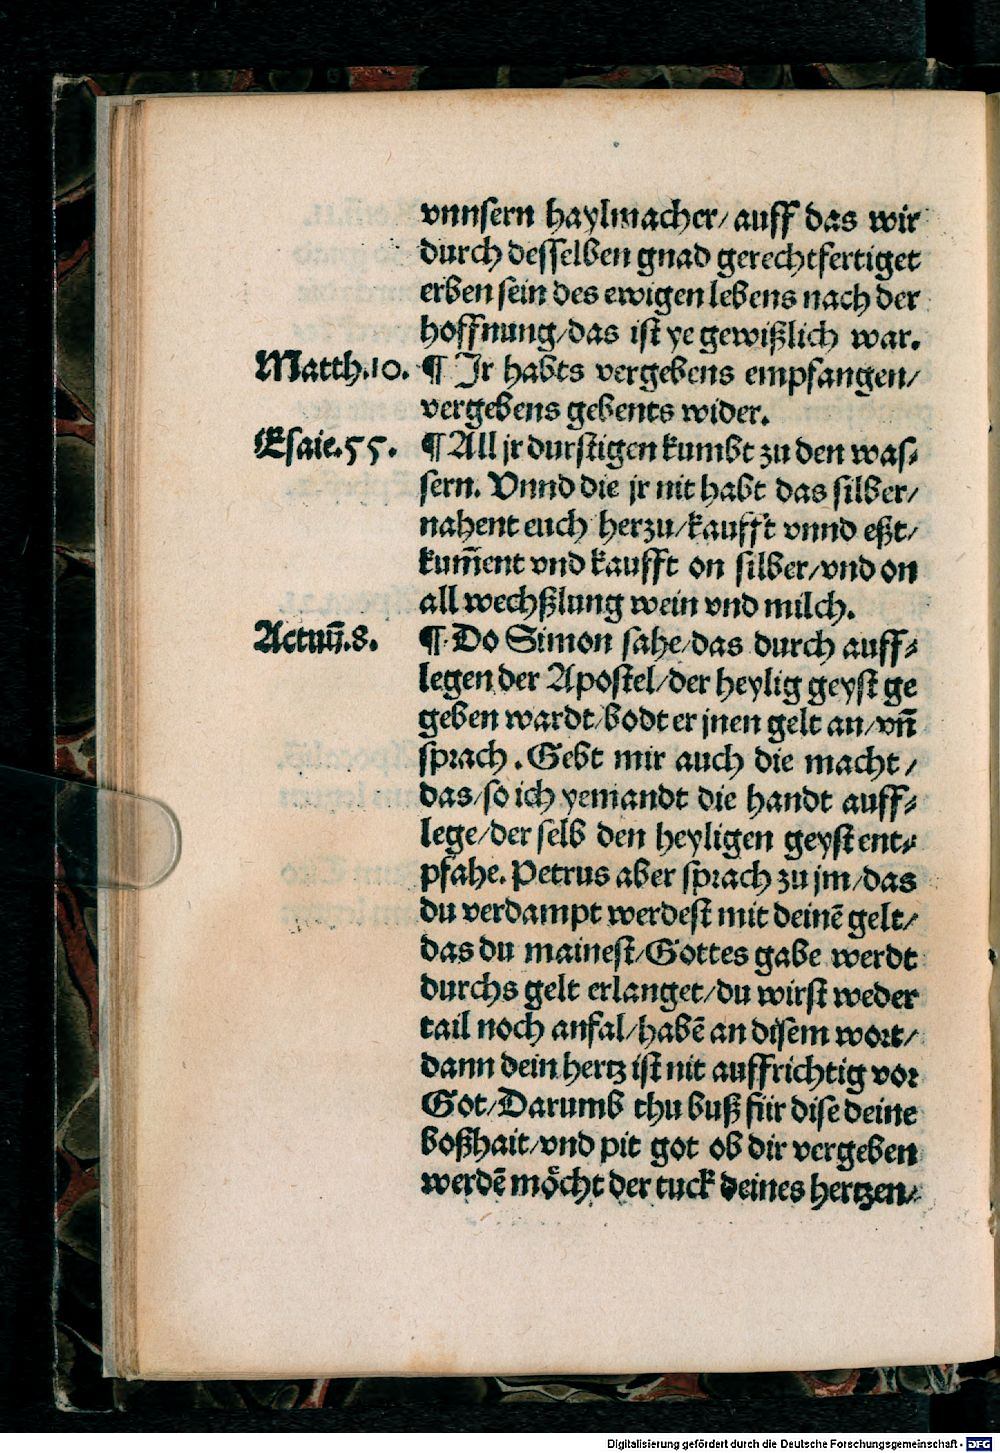 vnnsern haylmacher/ auff das wir
durch desselben gnad gerechtfertiget
erben sein des ewigen lebens nach der
hoffnung/das ist ye gewißlich war.
Matth.10. ¶ Jr habts vergebens empfangen/
vergebens gebents wider.
Esaie.55. ¶ All jr durstigen kumbt zu den was⸗
sern. Vnnd die jr nit habt das silber/
nahent euch herzu/kaufft vnnd eßt/
kum̄ent vnd kaufft on silber/vnd on
all wechßlung wein vnd milch.
Actuū.8. ¶ Do Simon sahe/das durch auff⸗
legen der Apostel/der heylig geyst ge
geben wardt/bodt er jnen gelt an/vn̄
sprach. Gebt mir auch die macht/
das/so ich yemandt die handt auff⸗
lege/der selb den heyligen geyst ent⸗
pfahe. Petrus aber sprach zu jm/das
du verdampt werdest mit deinē gelt/
das du mainest/Gottes gabe werdt
durchs gelt erlanget/du wirst weder
tail noch anfal/habē an disem wort/
dann dein hertz ist nit auffrichtig vor
Got/Darumb thu buß für dise deine
boßhait/vnd pit got ob dir vergeben
werdē möcht der tuck deines hertzen/
Digitalisierung gefördert durch die Deutsche Forschungsgemeinschaft - DFG